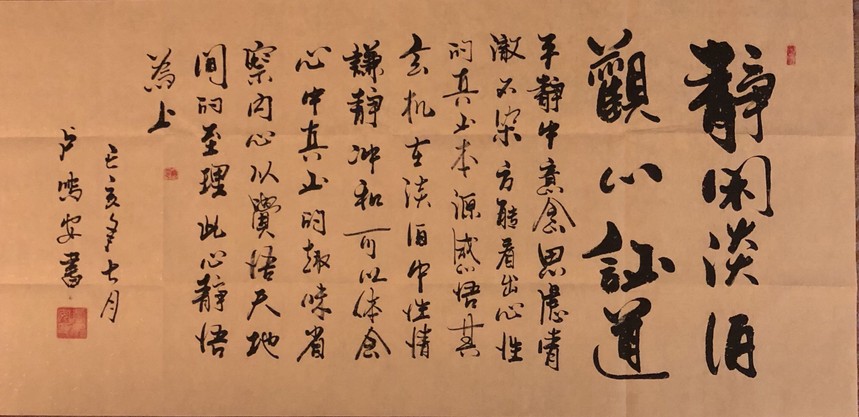 靜闲淡泊
觀心証道
平静中意念思慮清
澈不染方能看出心性
的真出本源感悟其
玄机在淡泊中性情
謙静冲和可以体会
心中真出的趣味省
察内心以寶悟天地
間的至理此心静悟
為上
己亥年七月
卢鸣安書